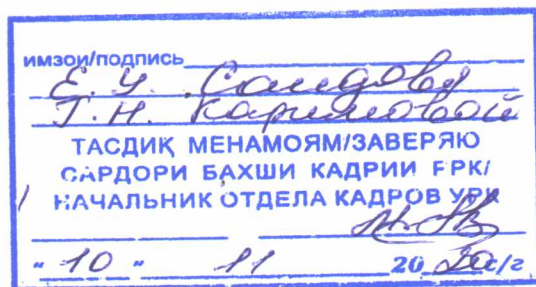 имзои/подпись
Е. У. Саидова
Г. Н. Каримовой
ТАСДИҚ МЕНАМОЯМ/ЗАВЕРЯЮ
САРДОРИ БАХШИ КАДРИИ
НАЧАЛЬНИК ОТДЕЛА КАДРОВ
" 10 " 11 20 20 с/г